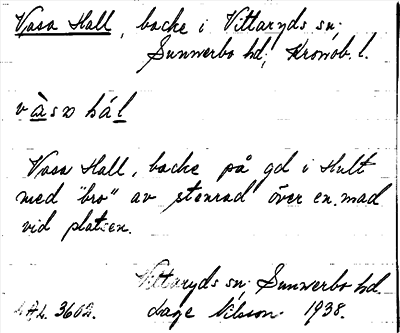 Vasa Hall, backe i Vittaryds sn;
Sunnerbo hd; Kronob. l.
Vasa Hall, backe på gd i Hult
med "bro" av stenrad över en mad
vid platsen.
Vittaryds sn; Sunnerbo hd.
3602. Dage Nilsson 1938.